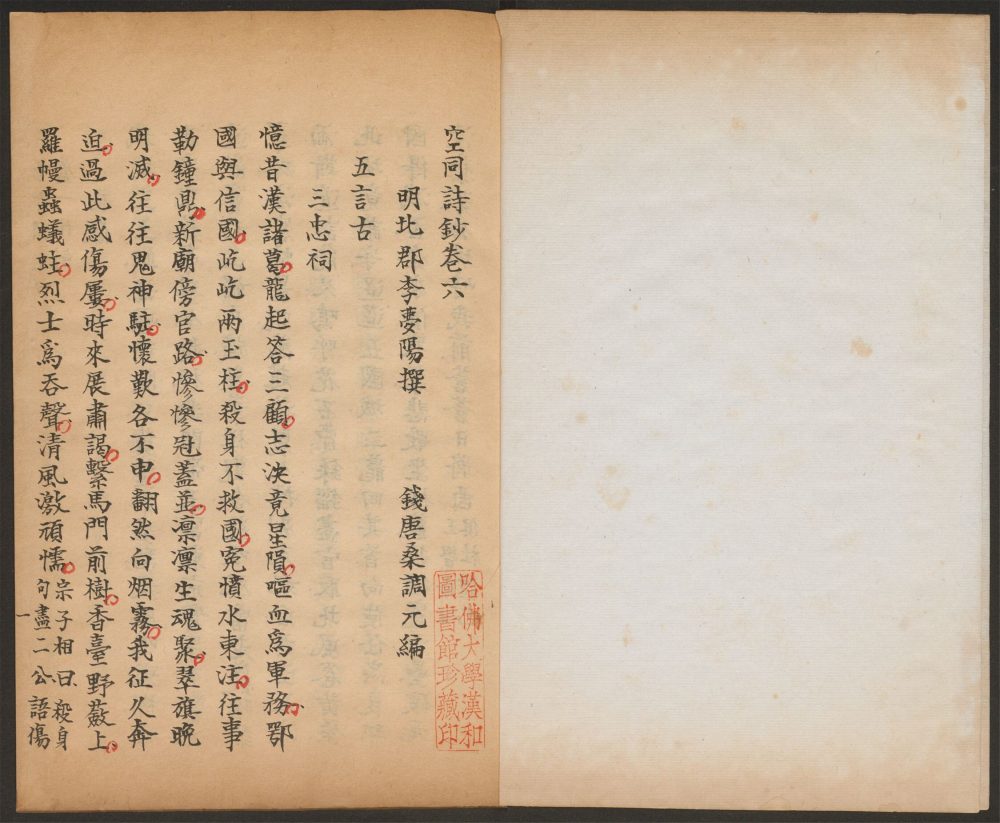 空同詩鈔卷六
明北郡李夢陽撰 錢唐桑調元編
五言古
三忠祠
憶昔漢諸葛龍起答三顧志決竟星隕嘔血爲軍務鄂
國與信國屹屹兩玉柱殺身不救國冤憤水東注往事
勒鐘鼎新廟傍官路慘慘冠蓋並凛凛生魂聚翠旗晩
明滅往往鬼神駐懷歎各不申翻然向烟霧我征久奔
迫過此感傷屢時來展肅謁繫馬門前樹香臺野蔌上
羅幔蟲蟻蛀烈士爲吞聲清風激頑懦宗子相曰殺身
句盡二公語傷
一
哈佛大學漢和
圖書館珍藏印